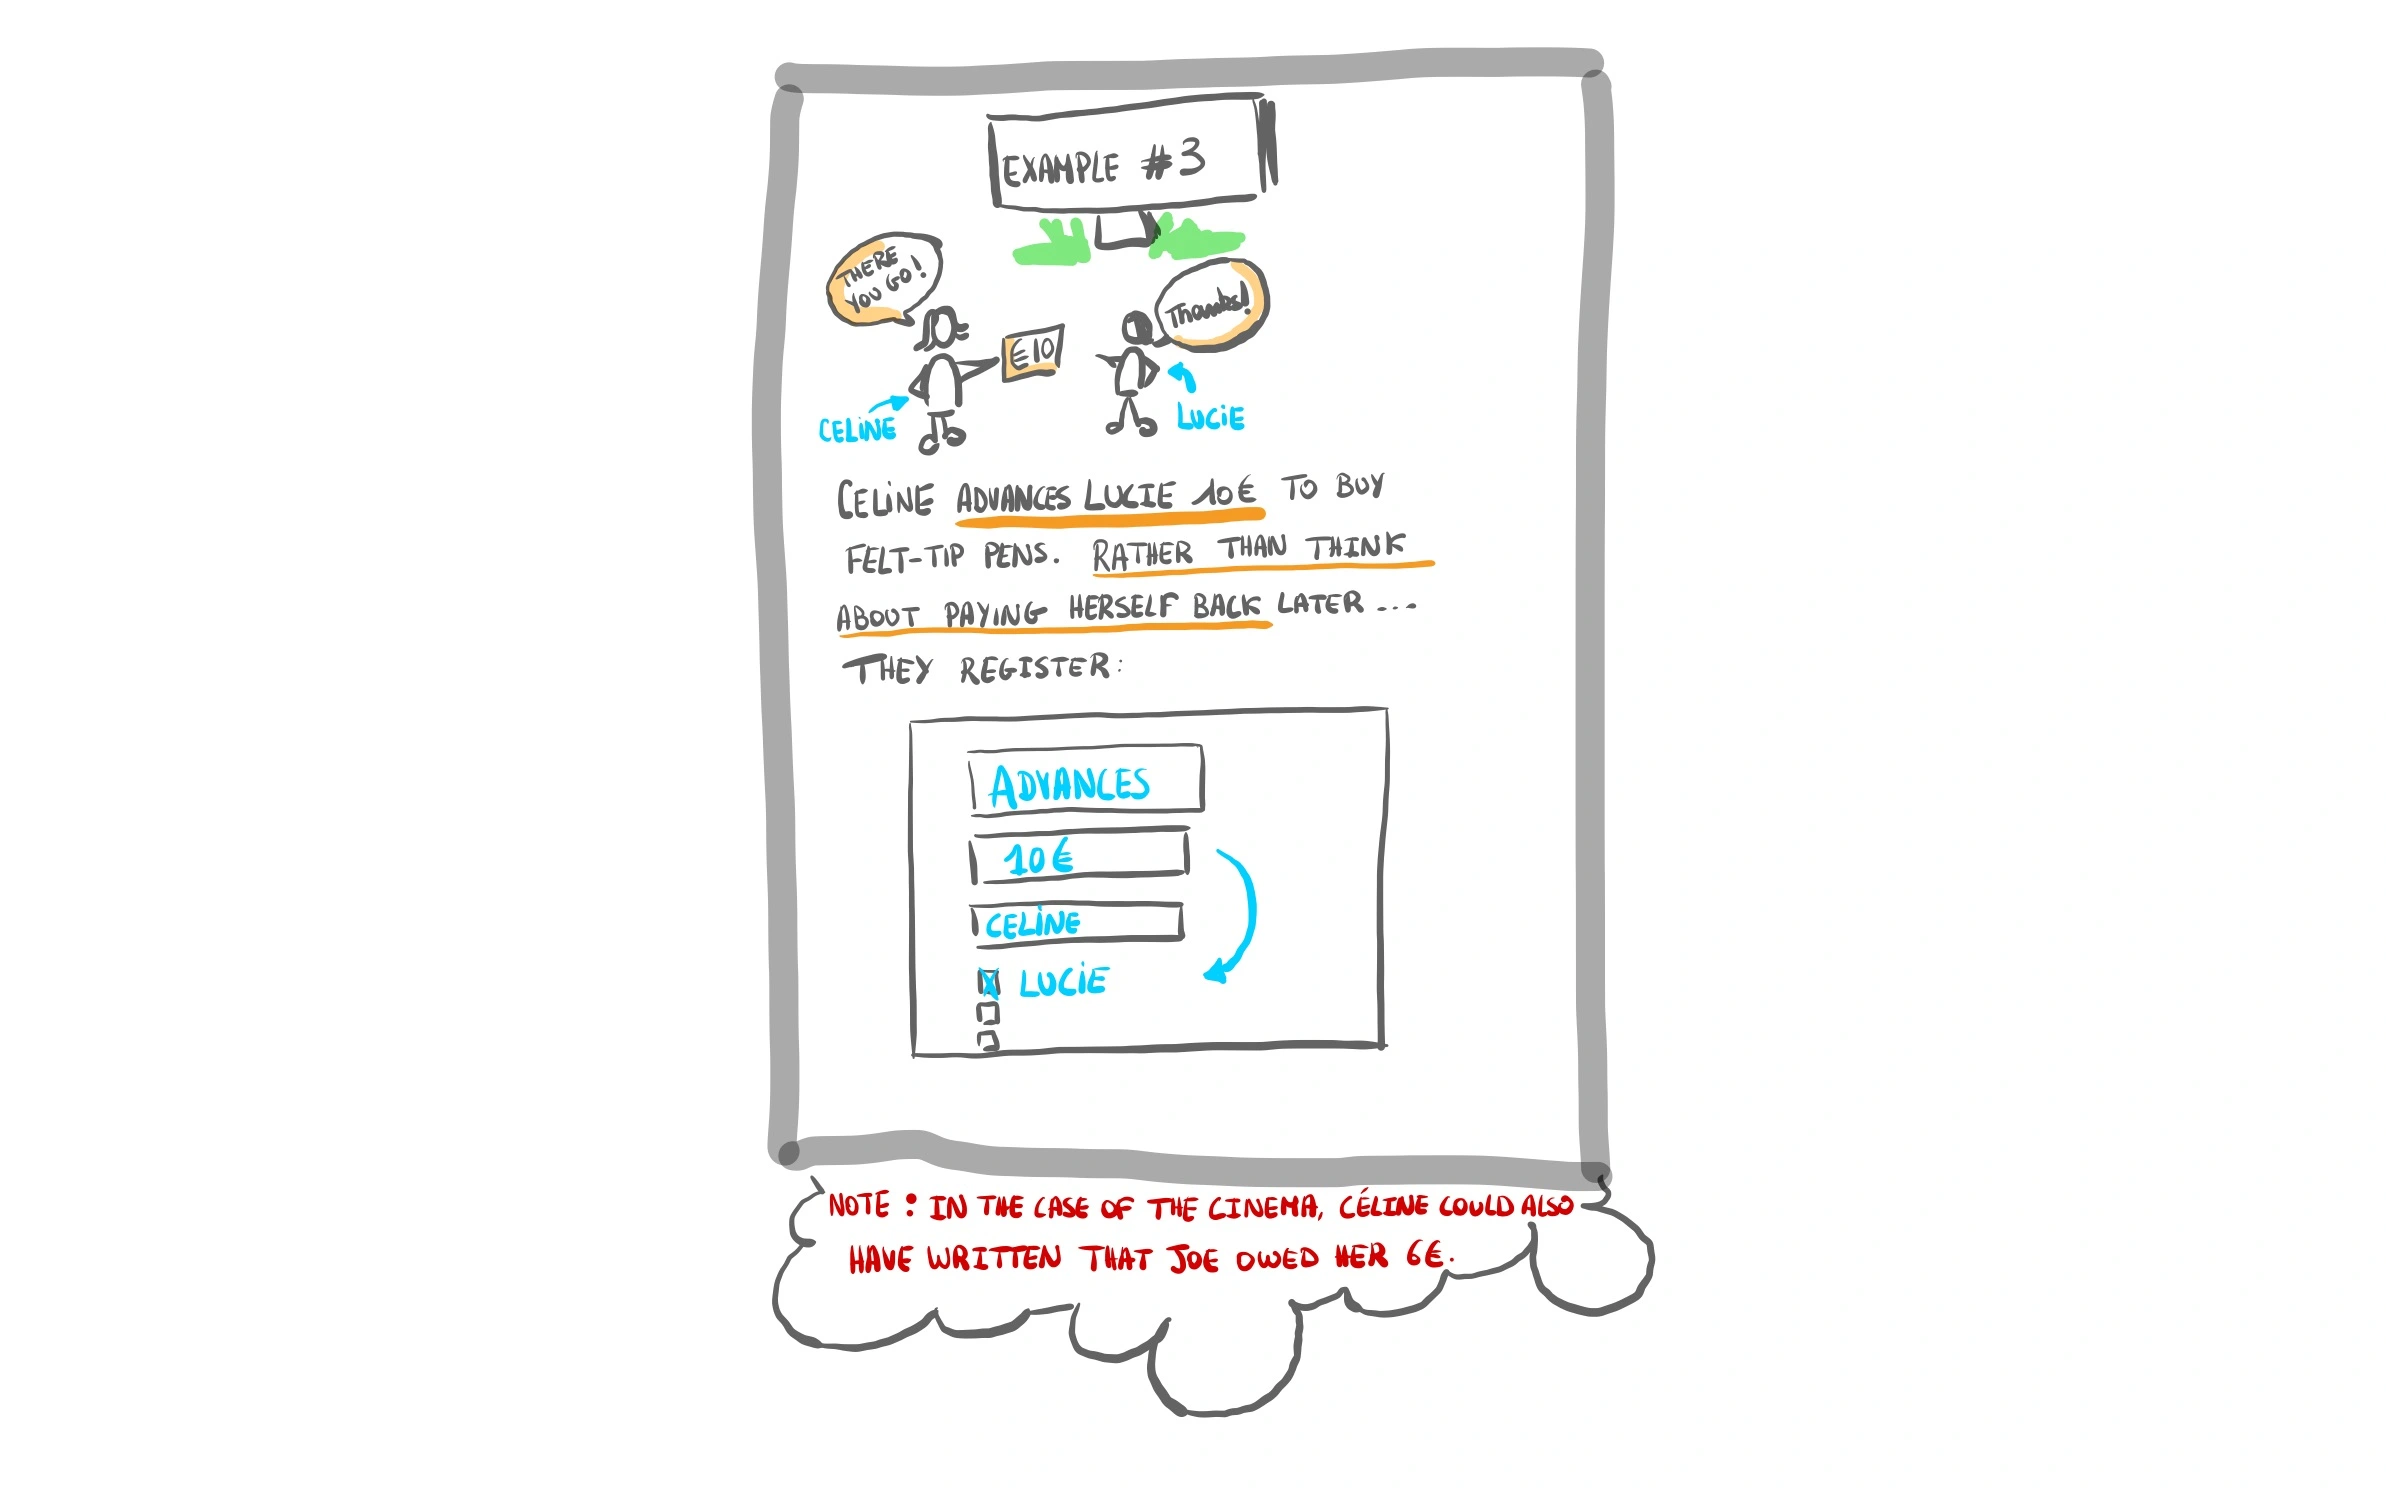 EXAMPLE #3
THERE
YOU GO!
Thanks!
€10
CELINE
LUCIE
CELINE ADVANCES LUCIE 10€ TO BUY
FELT-TIP PENS. RATHER THAN THINK
ABOUT PAYING HERSELF BACK LATER ...
THEY REGISTER:
ADVANCES
10€
CELINE
X LUCIE
NOTE : IN THE CASE OF THE CINEMA, CÉLINE COULD ALSO
HAVE WRITTEN THAT JOE OWED HER 6€.